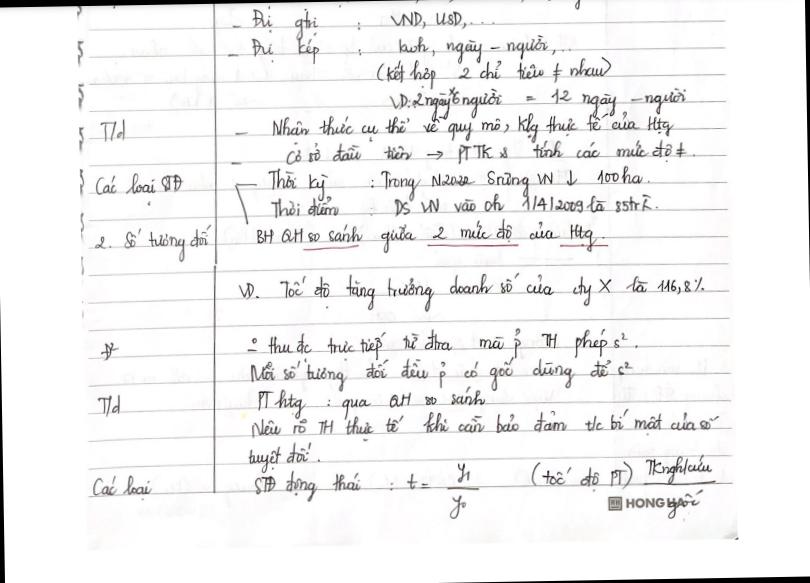 - Đvị ghi : VND, USD,...
- Đvị kép : kwh, ngày - người,..
(kết hợp 2 chỉ tiêu ≠ nhau)
VD: 2ngày x 6người = 12 ngày - người
T/d - Nhân thức cụ thể về quy mô, klg thực tế của Htg
- Cơ sở đầu tiên → PTTK & tính các mức độ ≠.
Các loại STĐ Thời kỳ : Trong N2022 Srừng VN ↓ 100ha.
Thời điểm : DS VN vào 0h 1/4/2009 là 85tr
2. Số tương đối BH QH so sánh giữa 2 mức độ của Htg.
VD. Tốc độ tăng trưởng doanh số của cty X là 116,8%
Đ² - thu đc trực tiếp từ đtra mà p̉ TH phép s².
Mỗi số tương đối đều p̉ có gốc dùng để s²
T/d PT htg : qua QH so sánh
Nêu rõ TH thực tế khi cần bảo đảm t/c bí mật của số
tuyệt đối.
Các loại STĐ động thái : t = y₁/y₀ (tốc độ PT) TKnghcứu/gốc
HONG HA